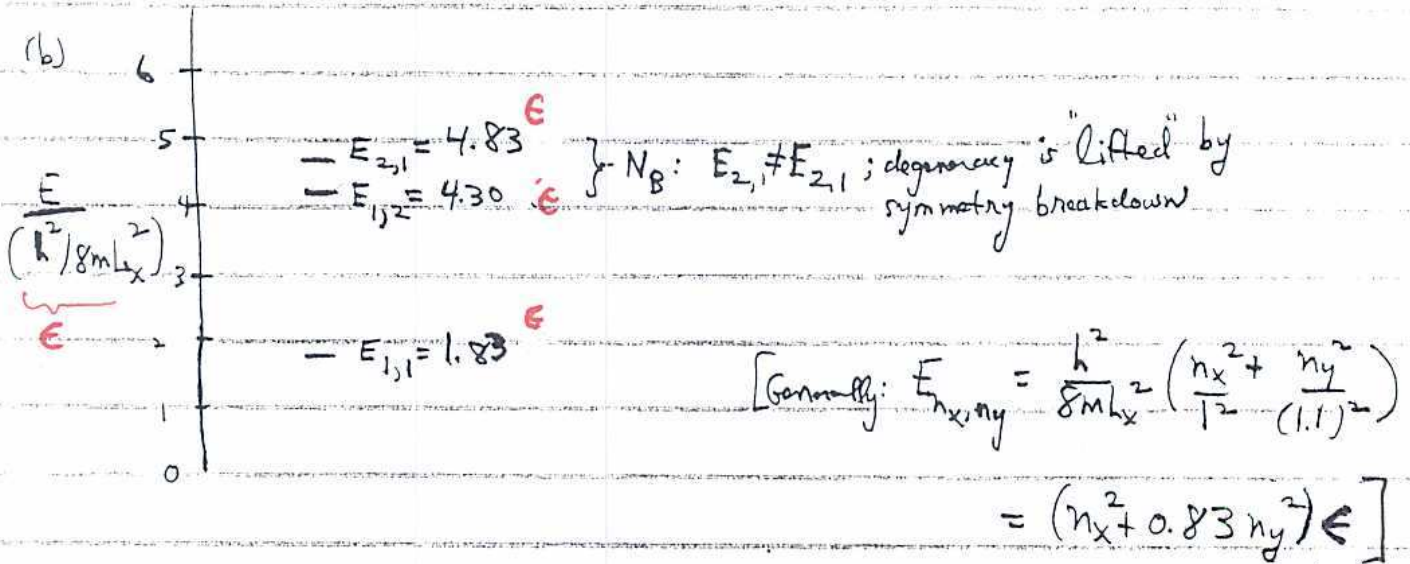 (b)
6
5
4
3
2
1
0
E
(h²/8mLₓ²)
ϵ
— E₂,₁ = 4.83 ϵ
— E₁,₂ = 4.30 ϵ
} N_B: E₂,₁ ≠ E₂,₁ ; degeneracy is "lifted" by
symmetry breakdown
— E₁,₁ = 1.83 ϵ
[Generally: E_{nx,ny} = h²/8mLₓ² (nₓ²/1² + n_y²/(1.1)²)
= (nₓ² + 0.83 n_y²) ϵ ]